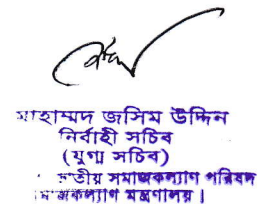 মোহাম্মদ জসিম উদ্দিন
নির্বাহী সচিব
(যুগ্ম সচিব)
জাতীয় সমাজকল্যাণ পরিষদ
সমাজকল্যাণ মন্ত্রণালয়।